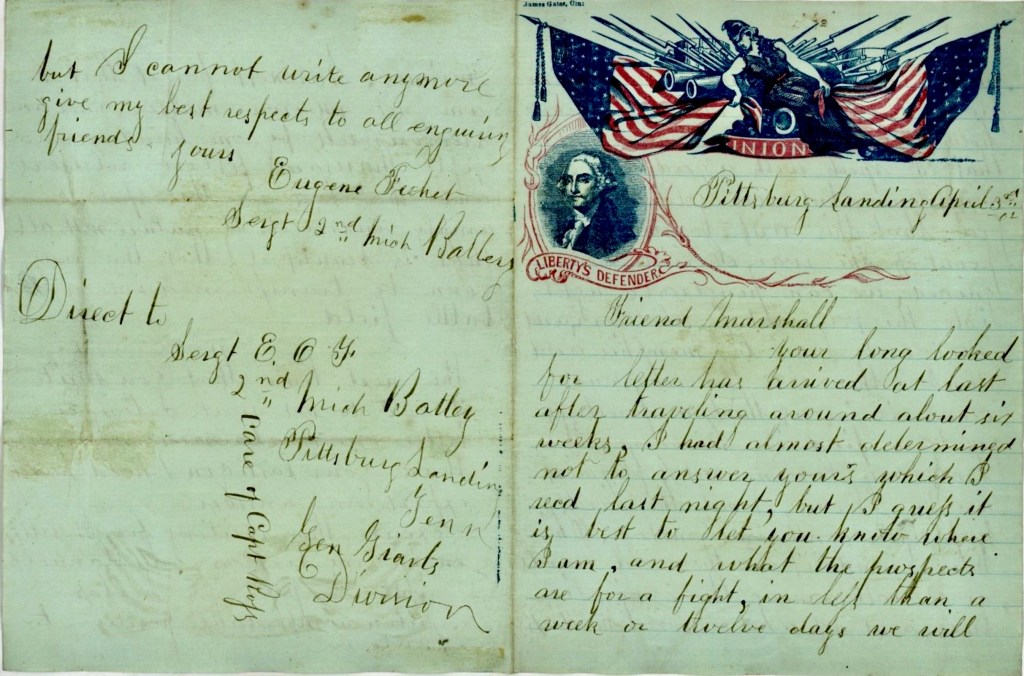 James Gates, Cin:
UNION
LIBERTY'S DEFENDER
Pittsburg Landing April 3rd
/62
Friend Marshall
your long looked
for letter has arived at last
after traveling around about six
weeks, I had almost determined
not to answer yours which I
recd last night, but I guess it
is best to let you know where
I am, and what the prospects
are for a fight, in less than a
week or twelve days we will
but I cannot write anymore
give my best respects to all enquiring
friends, yours
Eugene
Sergt 2nd Mich Battery
Direct to
Sergt E. O. F
2nd Mich Battey
Pittsburg Landin
Tenn
Gen
Division
Care of Capt Ross